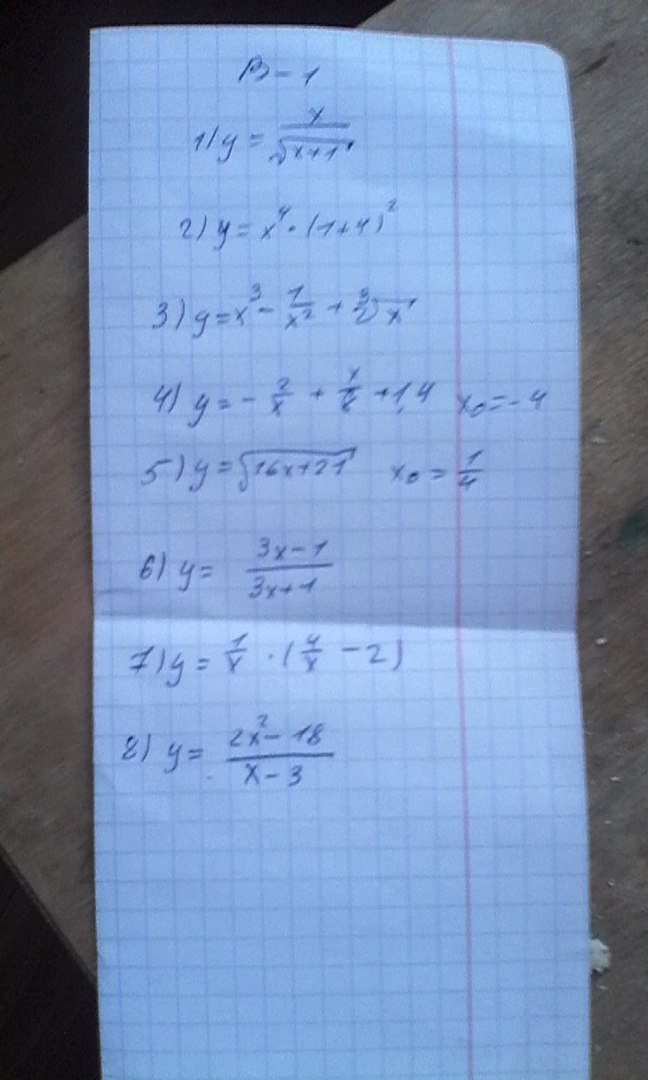 В-1
1) y = x/√(x+1)
2) y = x⁴ · (1+4)²
3) y = x³ - 1/x² + ∛x
4) y = - 2/x + x/8 + 1,4 x₀ = -4
5) y = √(16x+21) x₀ = 1/4
6) y = (3x-1)/(3x+1)
7) y = 1/x · (4/x - 2)
8) y = (2x²-18)/(x-3)